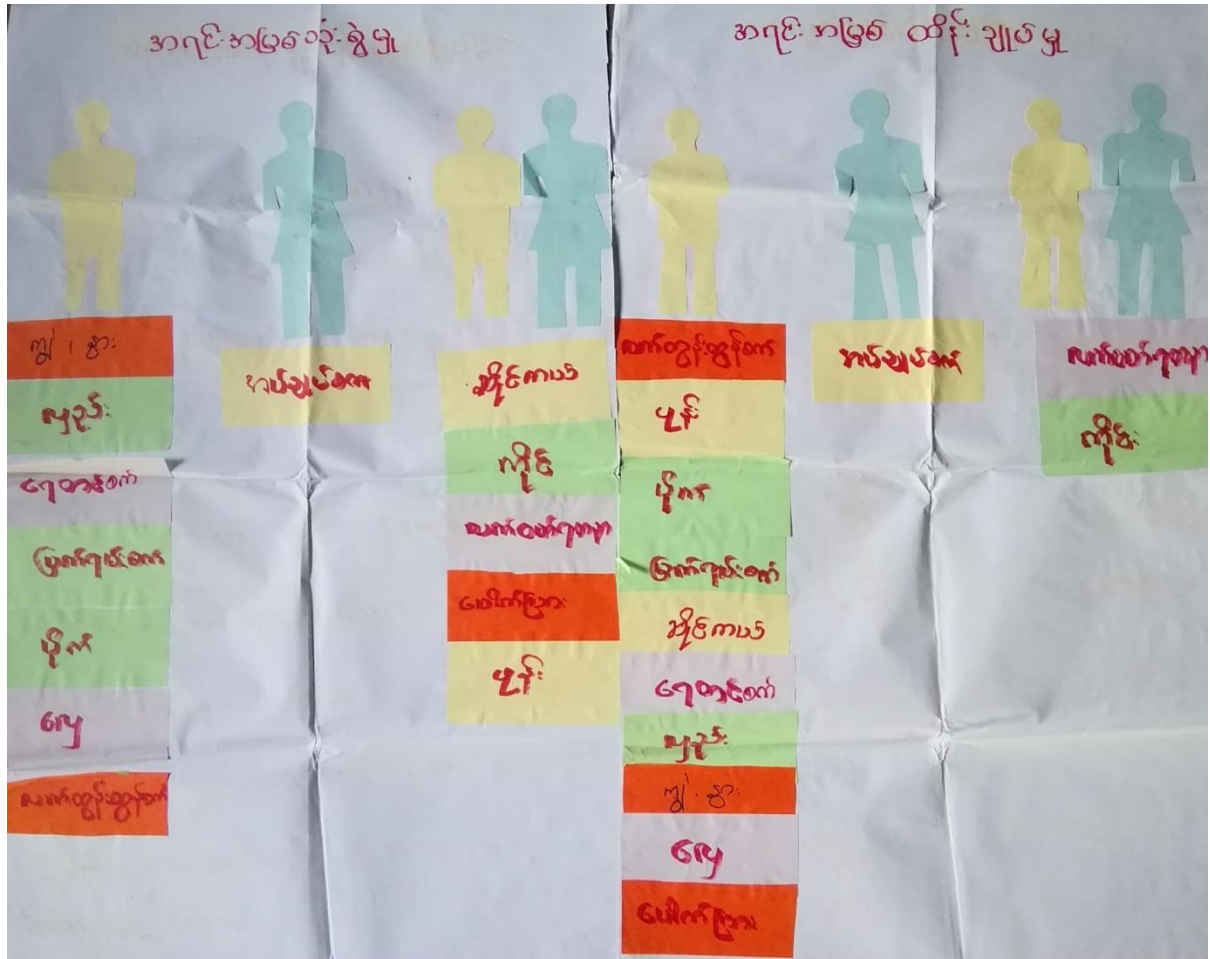 အရင်းအမြစ်သုံးစွဲမှု
ကျွဲ၊ နွား
လှည်း
ရေတင်စက်
မြက်ရှင်းစက်
ပိုက်
လှေ
လက်တွန်းထွန်စက်
အပ်ချုပ်စက်
ဆိုင်ကယ်
ကိုင်း
လက်ဝတ်ရတနာ
ပေါက်ပြား
ဖုန်း
အရင်းအမြစ် ထိန်းချုပ်မှု
လက်တွန်းထွန်စက်
ဖုန်း
ပိုက်
မြက်ရှင်းစက်
ဆိုင်ကယ်
ရေတင်စက်
လှည်း
ကျွဲ၊ နွား
လှေ
ပေါက်ပြား
အပ်ချုပ်စက်
လက်ဝတ်ရတနာ
ကိုင်း